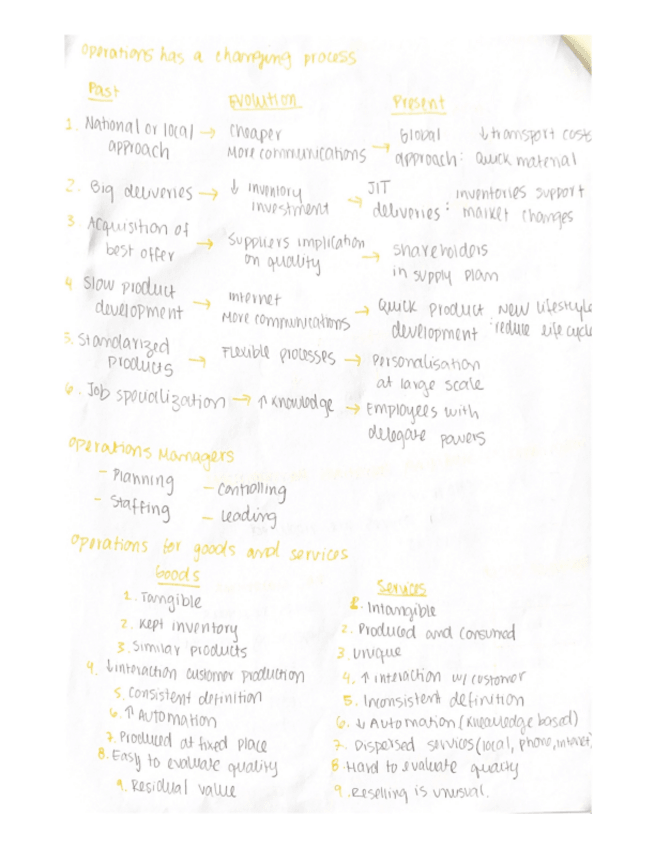 Operations has a changing process
Past Evolution Present
1. National or local approach → cheaper More communications → Global approach: ↓ transport costs Quick material
2. Big deliveries → ↓ inventory investment → JIT deliveries: inventories support market changes
3. Acquisition of best offer → Suppliers implication on quality → shareholders in supply plan
4 Slow product development → internet More communications → Quick product development: New lifestyle reduce life cycle
5. Standarized products → Flexible processes → Personalisation at large scale
6. Job specialization → ↑ knowledge → Employees with delegate powers
Operations Managers
- Planning - Controlling
- Staffing - Leading
Operations for goods and services
Goods Services
1. Tangible 1. Intangible
2. Kept inventory 2. Produced and consumed
3. Similar products 3. Unique
4. ↓ interaction customer production 4. ↑ interaction w/ customer
5. Consistent definition 5. Inconsistent definition
6. ↑ Automation 6. ↓ Automation (knowledge based)
7. Produced at fixed place 7. Dispersed services (local, phone, internet)
8. Easy to evaluate quality 8 Hard to evaluate quality
9. Residual value 9. Reselling is unusual.